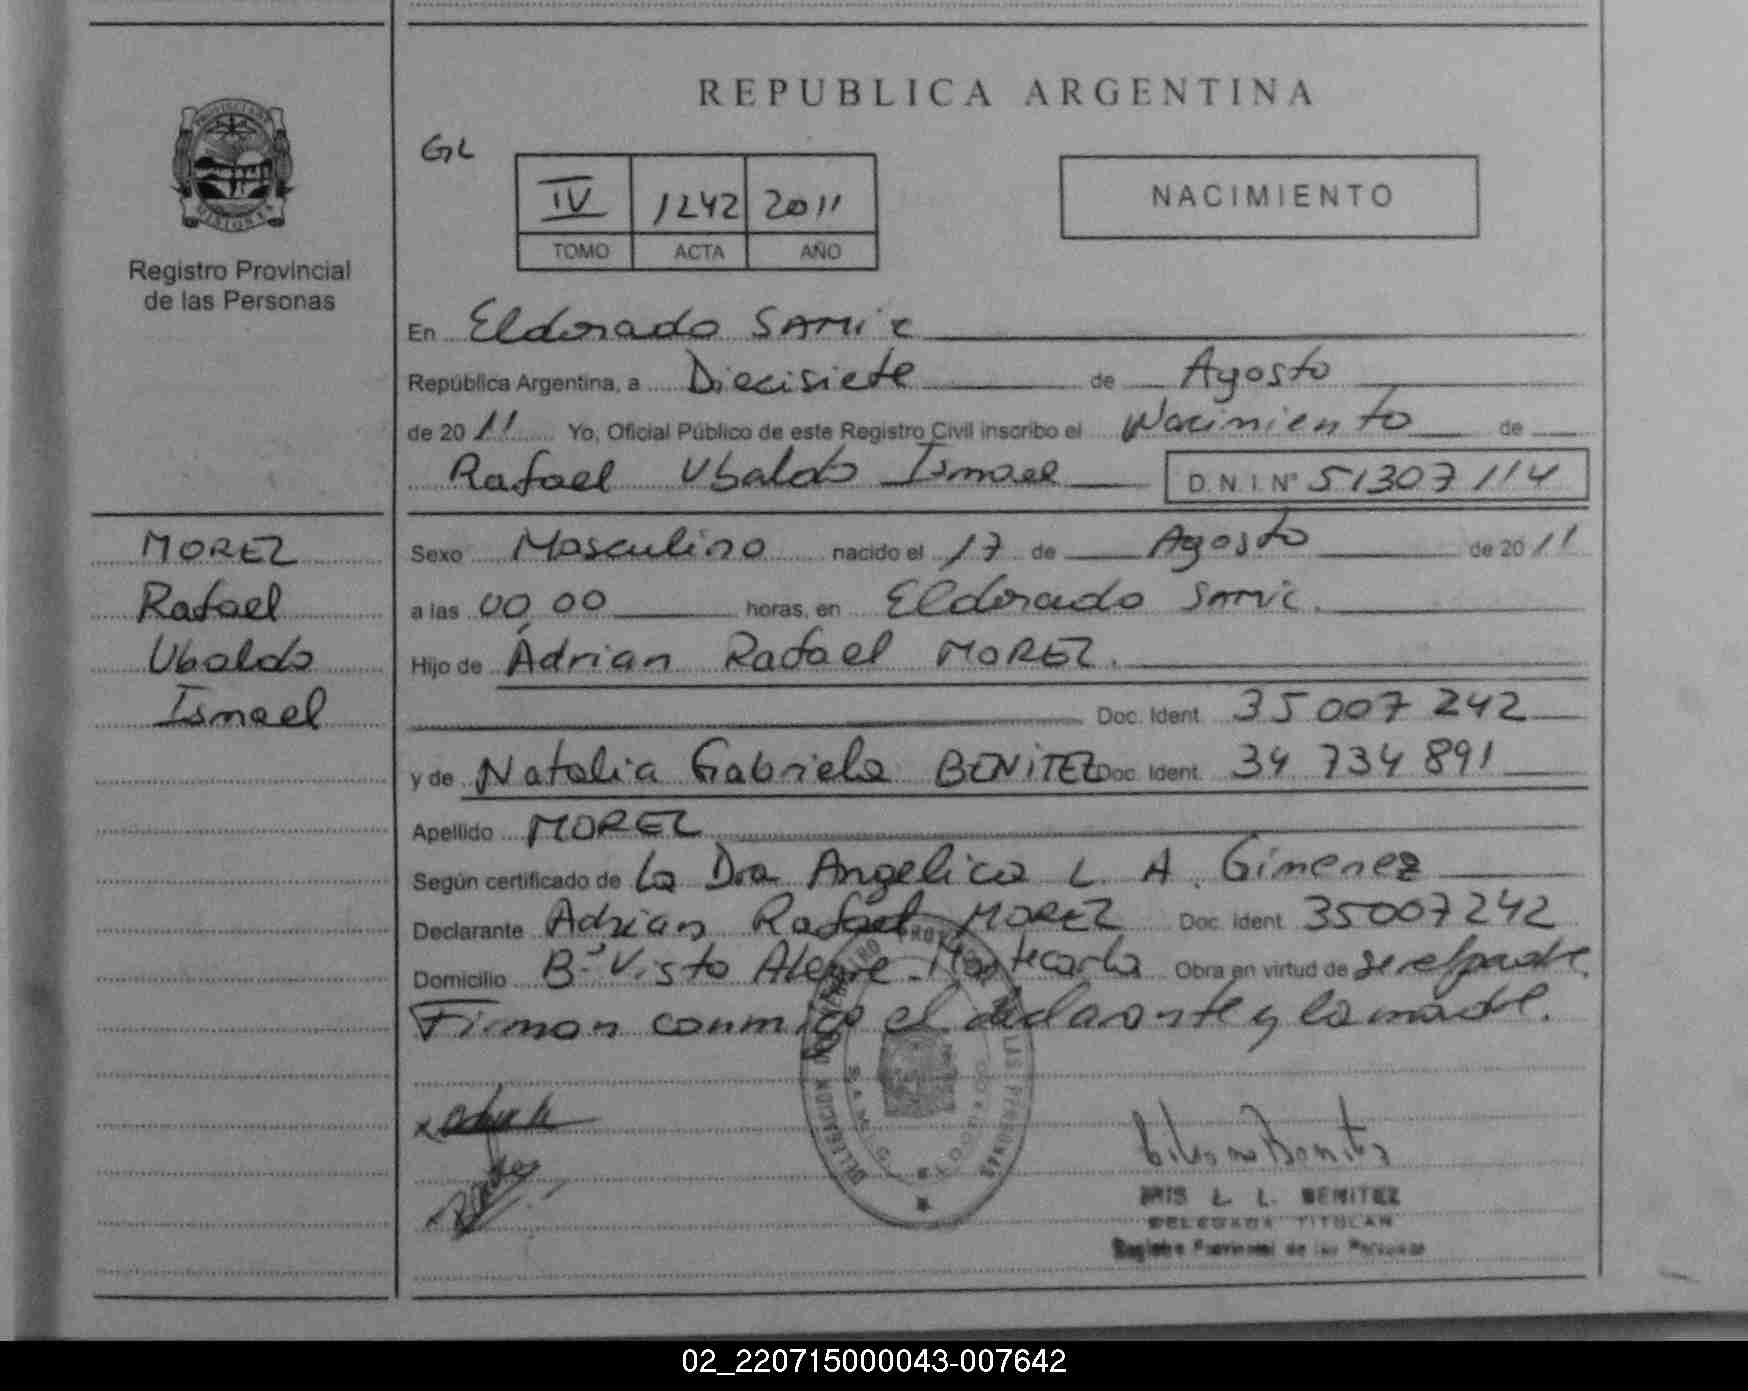 REPUBLICA ARGENTINA
GL
IV 1242 2011
TOMO ACTA AÑO
NACIMIENTO
PROVINCIA DE
MISIONES
Registro Provincial
de las Personas
En Eldorado SAMIC
República Argentina, a Diecisiete de Agosto
de 2011 Yo, Oficial Público de este Registro Civil inscribo el Nacimiento de
Rafael Ubaldo Ismael D.N.I. N° 51307114
MOREZ
Rafael
Ubaldo
Ismael
Sexo Masculino nacido el 17 de Agosto de 2011
a las 00,00 horas, en Eldorado SAMIC.
Hijo de Adrian Rafael MOREZ.
Doc. Ident. 35 007 242
y de Natalia Gabriela BENITEZ Doc. Ident. 34 734 891
Apellido MOREZ
Según certificado de La Dra Angelica L. A. Gimenez
Declarante Adrian Rafael MOREZ Doc. Ident. 35007242
Domicilio B° Vista Alegre - Montecarlo Obra en virtud de ser el padre.
Firman conmigo el declarante y la madre.
DELEGACION
DE LAS PERSONAS
L. L. BENITEZ
DELEGADA TITULAR
Registro Provincial de las Personas
02_220715000043-007642